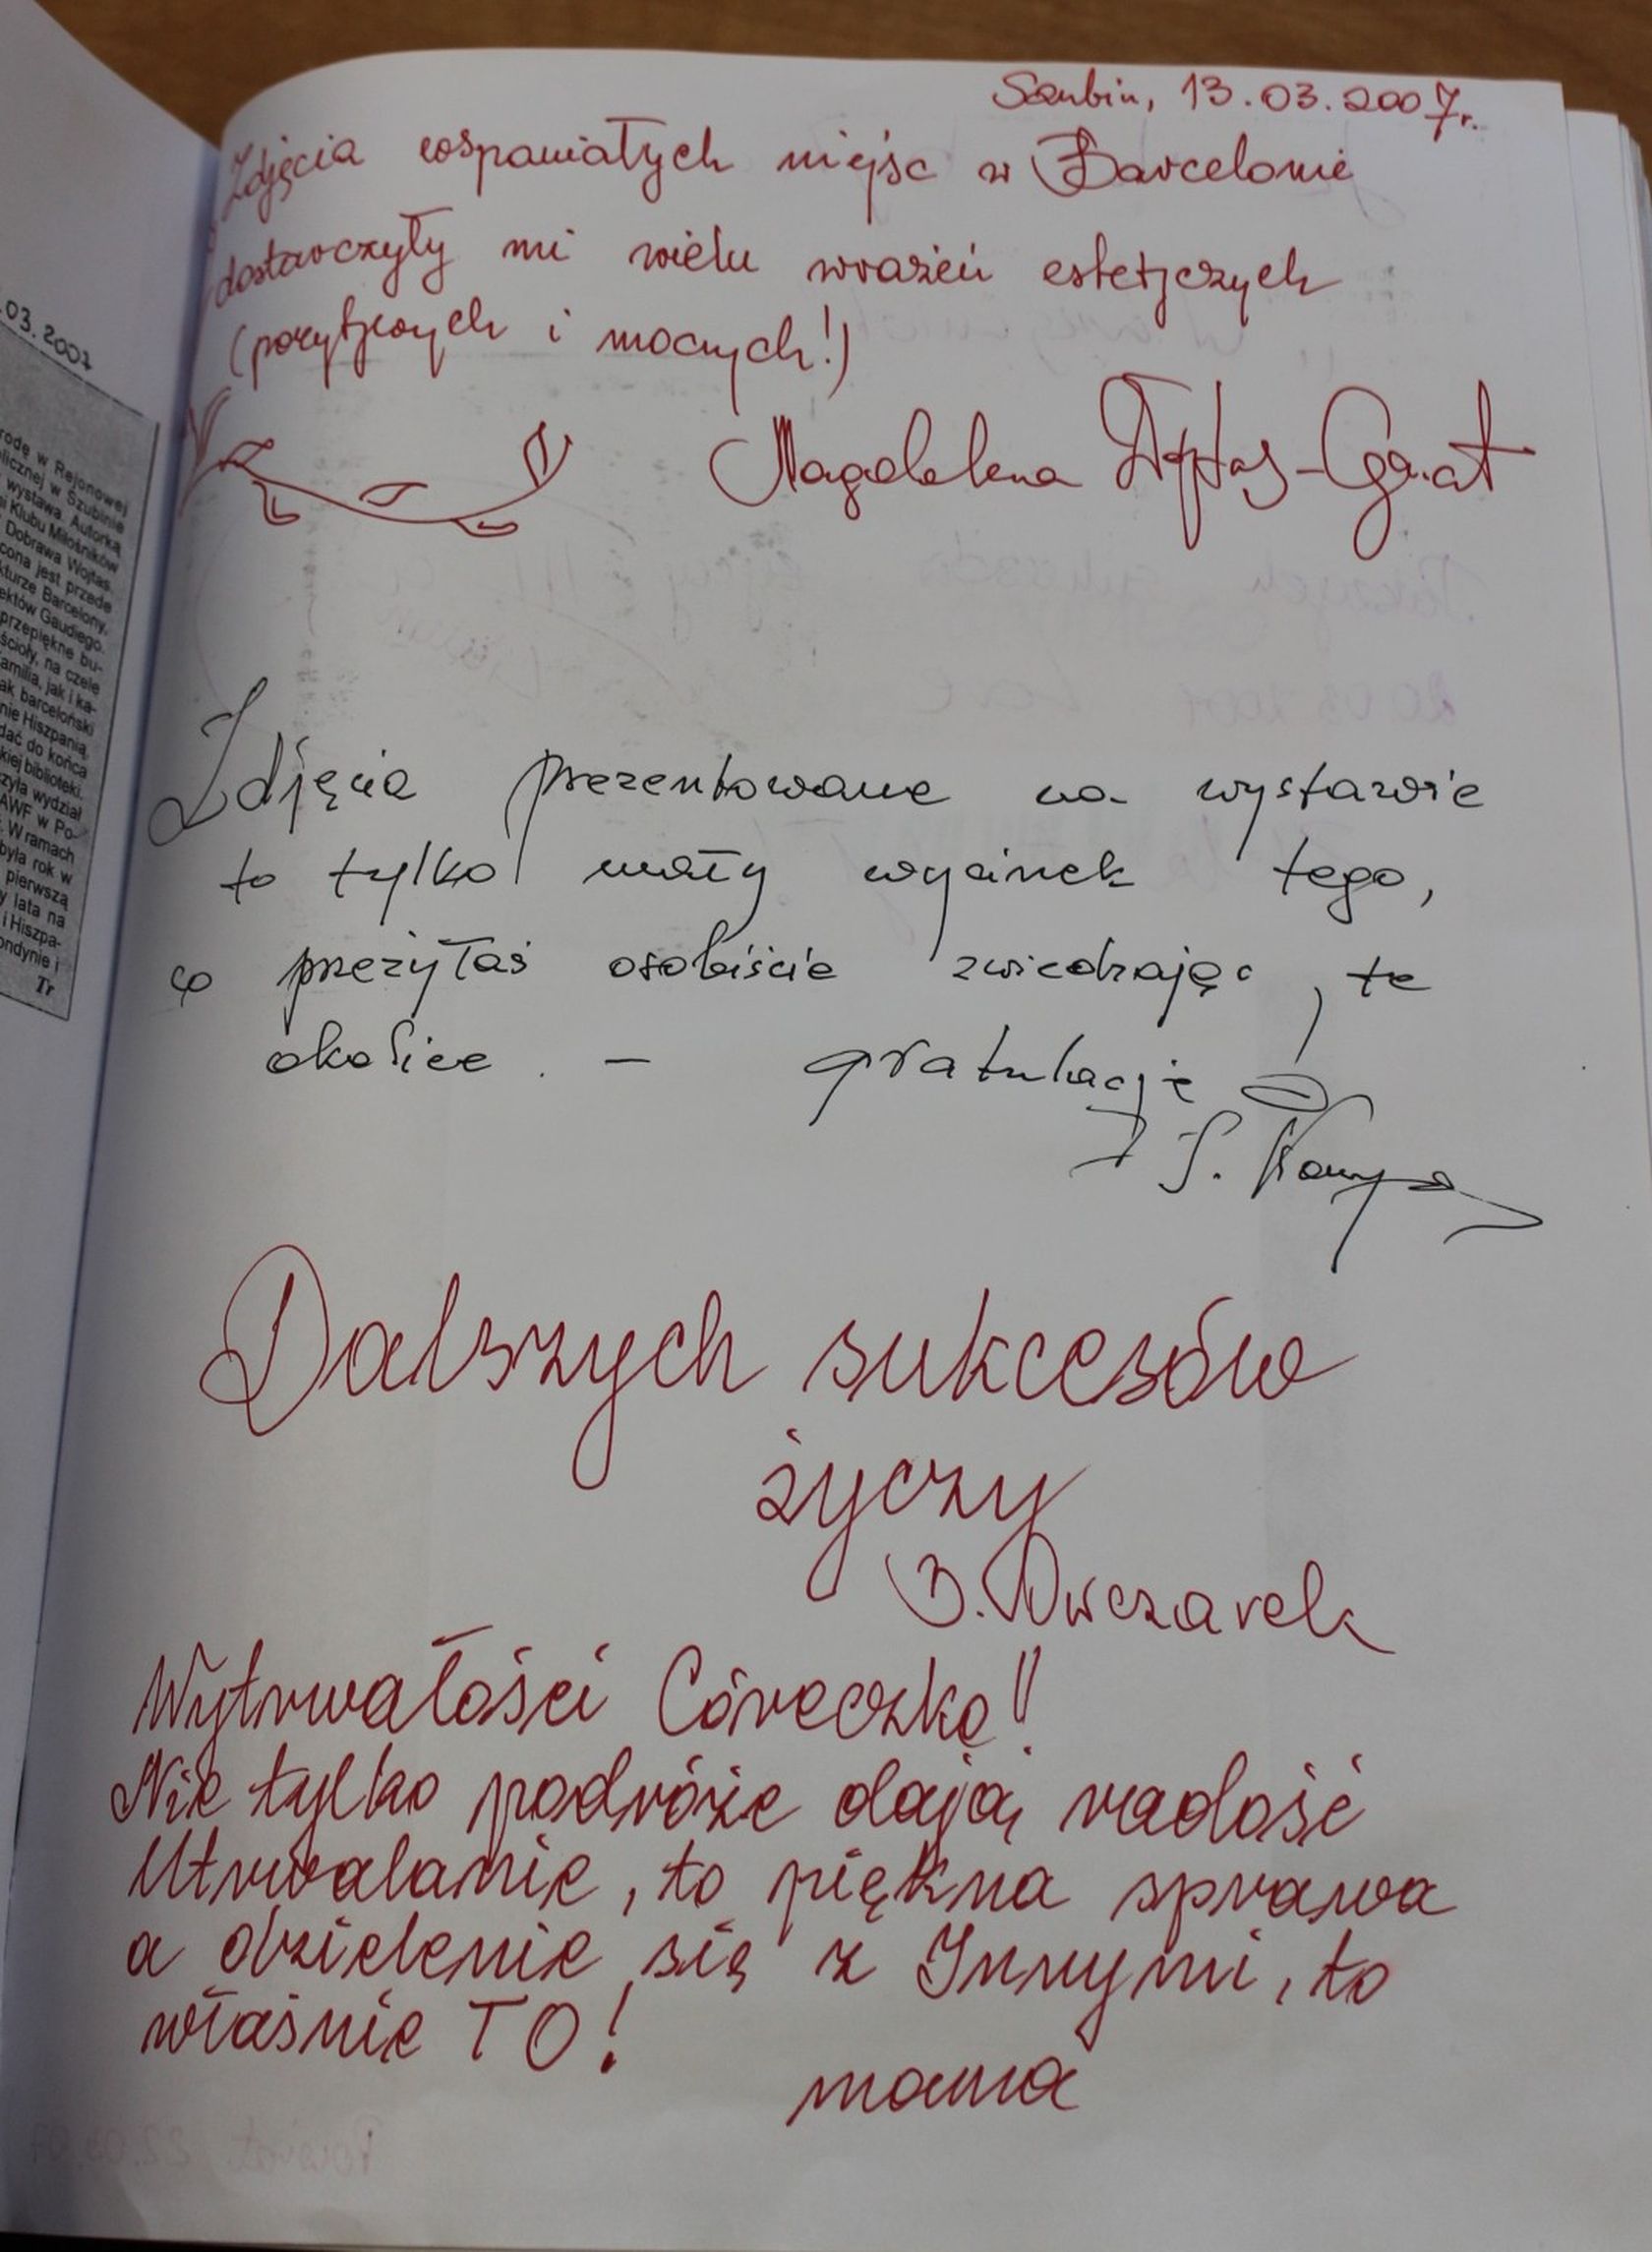 .03.2007
rodę w Rejonowej
licznej w Szubinie
wystawa. Autorką
i Klubu Miłośników
Dobrawa Wojtas.
cona jest przede
kturze Barcelony,
ektów Gaudiego.
przepiękne bu-
ścioły, na czele
amilia, jak i ka-
ak barceloński
nie Hiszpanią.
dać do końca
kiej biblioteki.
zyła wydział
AWF w Po-
. W ramach
była rok w
pierwszą
y lata na
i Hiszpa-
ondynie i
Tr
Szubin, 13.03.2007r.
Zdjęcia wspaniałych miejsc w Barcelonie
dostarczyły mi wielu wrażeń estetycznych
(pozytywnych i mocnych!)
Magdalena
Zdjęcia prezentowane na wystawie
to tylko mały wycinek tego,
co przeżyłaś osobiście zwiedzając te
okolice. – gratulacje
S.
Dalszych sukcesów
życzy
B. Owczarek
Wytrwałości Córeczko!!
Nie tylko podróże dają radość
Utrwalanie, to piękna sprawa
a dzielenie się z Innymi, to
właśnie TO!
mama